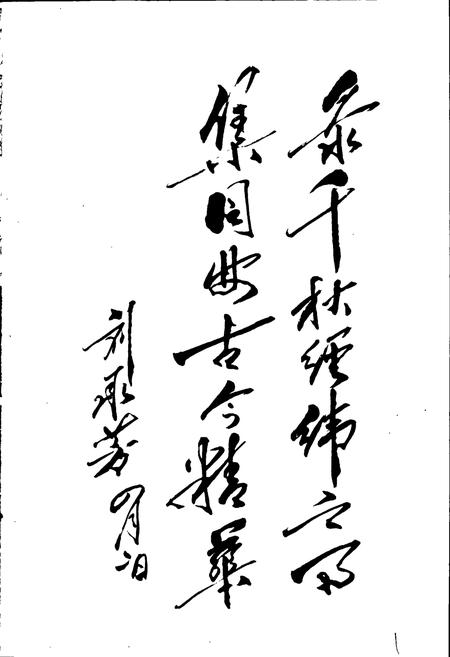 泰千秋经纬之
集同安古今精华
刘承芳 四月二日